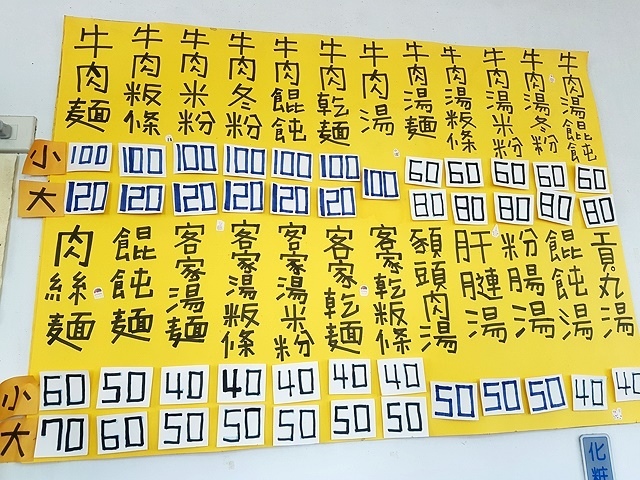 牛肉麵
牛肉粄條
牛肉米粉
牛肉冬粉
牛肉餛飩
牛肉乾麵
牛肉湯
牛肉湯麵
牛肉湯粄條
牛肉湯米粉
牛肉湯冬粉
牛肉湯餛飩
小 100 100 100 100 100 100 60 60 60 60 60
100
大 120 120 120 120 120 120 80 80 80 80 80
肉絲麵
餛飩麵
客家湯麵
客家湯粄條
客家湯米粉
客家乾麵
客家乾粄條
豬頭肉湯
肝腱湯
粉腸湯
餛飩湯
貢丸湯
小 60 50 40 40 40 40 40
50 50 50 40 40
大 70 60 50 50 50 50 50
化粧